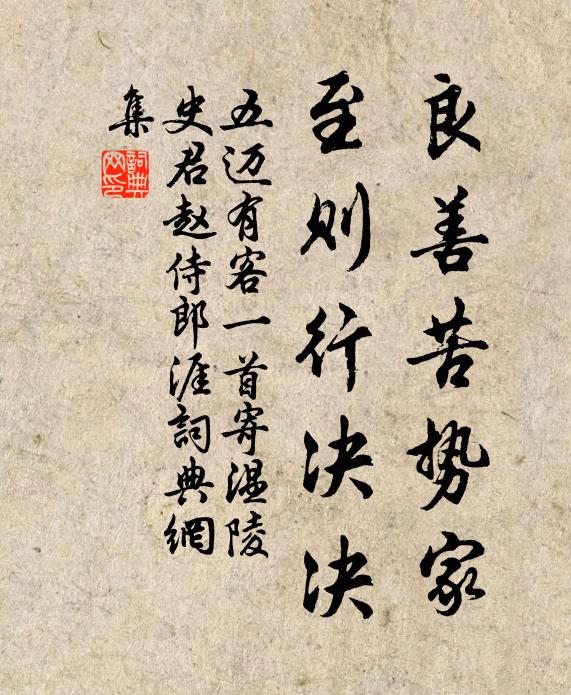 良善苦势家
至则行决决
五迈有客一首寄温陵
史君赵侍郎涯詞典網
集
詞典
网印